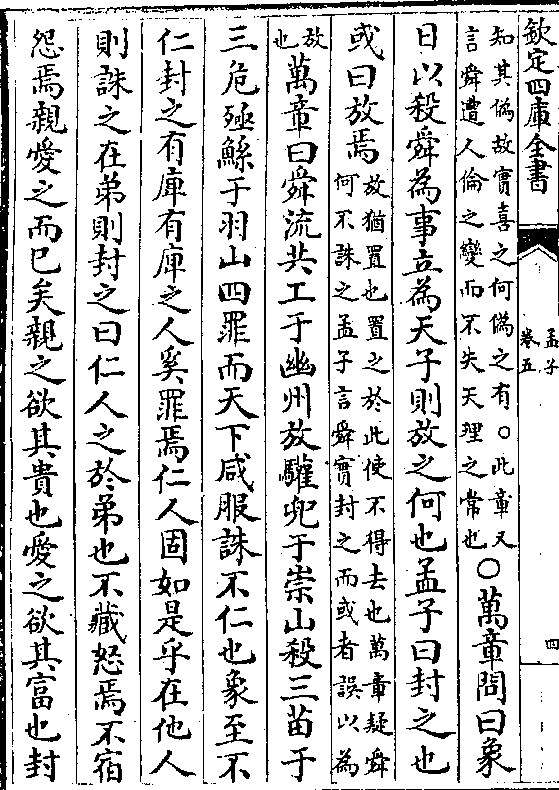 欽定四庫全書
孟子
卷五
四
知其偽故實喜之何偽之有○此章又
言舜遭人倫之變而不失天理之常也
○萬章問曰象
日以殺舜為事立為天子則放之何也孟子曰封之也
或曰放焉
放猶置也置之於此使不得去也萬章疑舜
何不誅之孟子言舜實封之而或者誤以為
放
也
萬章曰舜流共工于幽州放驩兜于崇山殺三苗于
三危殛鯀于羽山四罪而天下咸服誅不仁也象至不
仁封之有庳有庳之人奚罪焉仁人固如是乎在他人
則誅之在弟則封之曰仁人之於弟也不藏怒焉不宿
怨焉親愛之而已矣親之欲其貴也愛之欲其富也封